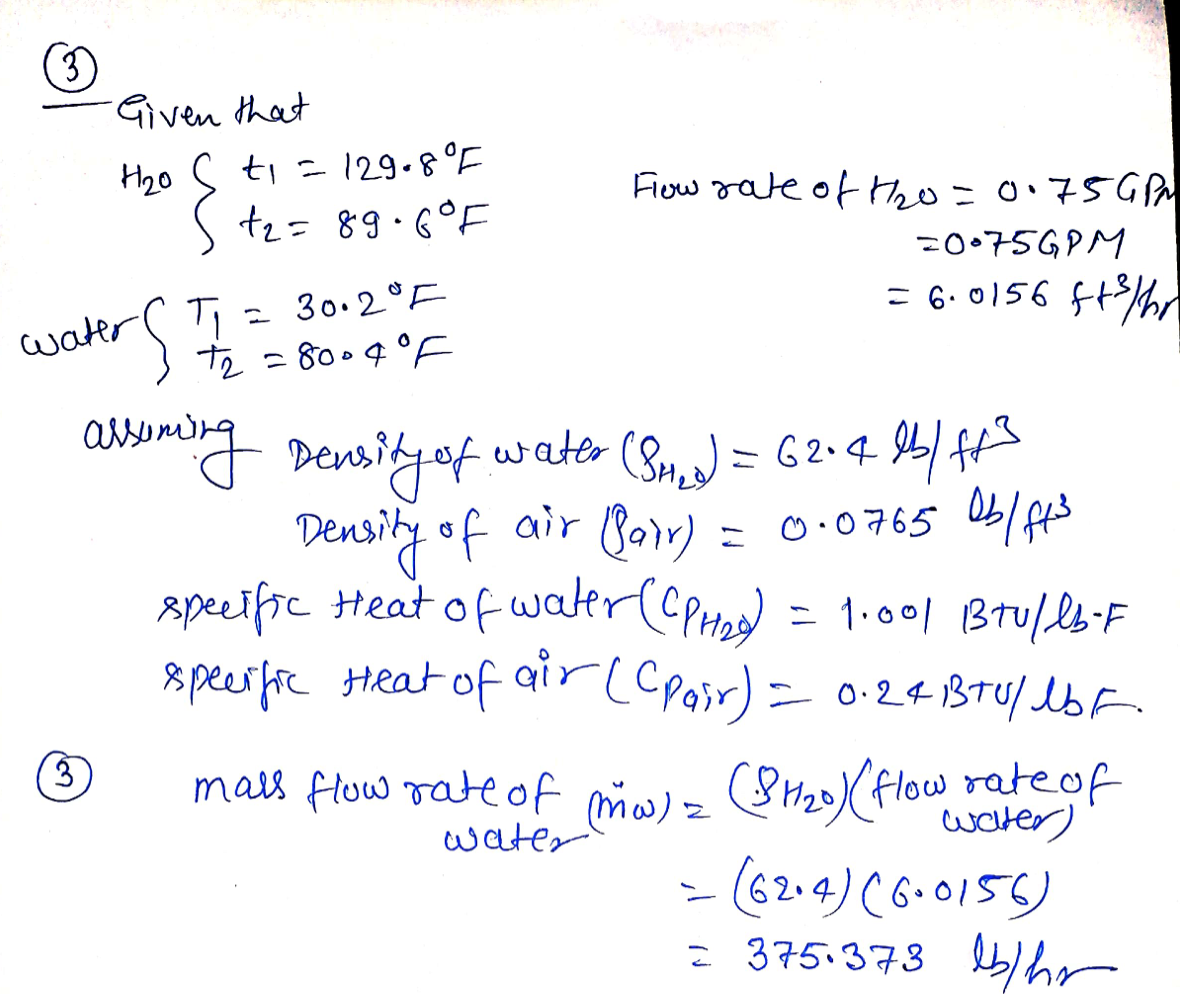 ③
Given that
H2O { t1 = 129.8°F
t2 = 89.6°F
Flow rate of H2O = 0.75 GPM
= 0.75 GPM
= 6.0156 ft³/hr
water { T1 = 30.2°F
t2 = 80.4°F
assuming Density of water (ρH2O) = 62.4 lb/ft³
Density of air (ρair) = 0.0765 lb/ft³
specific Heat of water (CPH2O) = 1.001 BTU/lb-F
specific Heat of air (CPair) = 0.24 BTU/lb F.
③ mass flow rate of water (ṁw) = (ρH2O)(flow rate of water)
= (62.4) (6.0156)
= 375.373 lb/hr